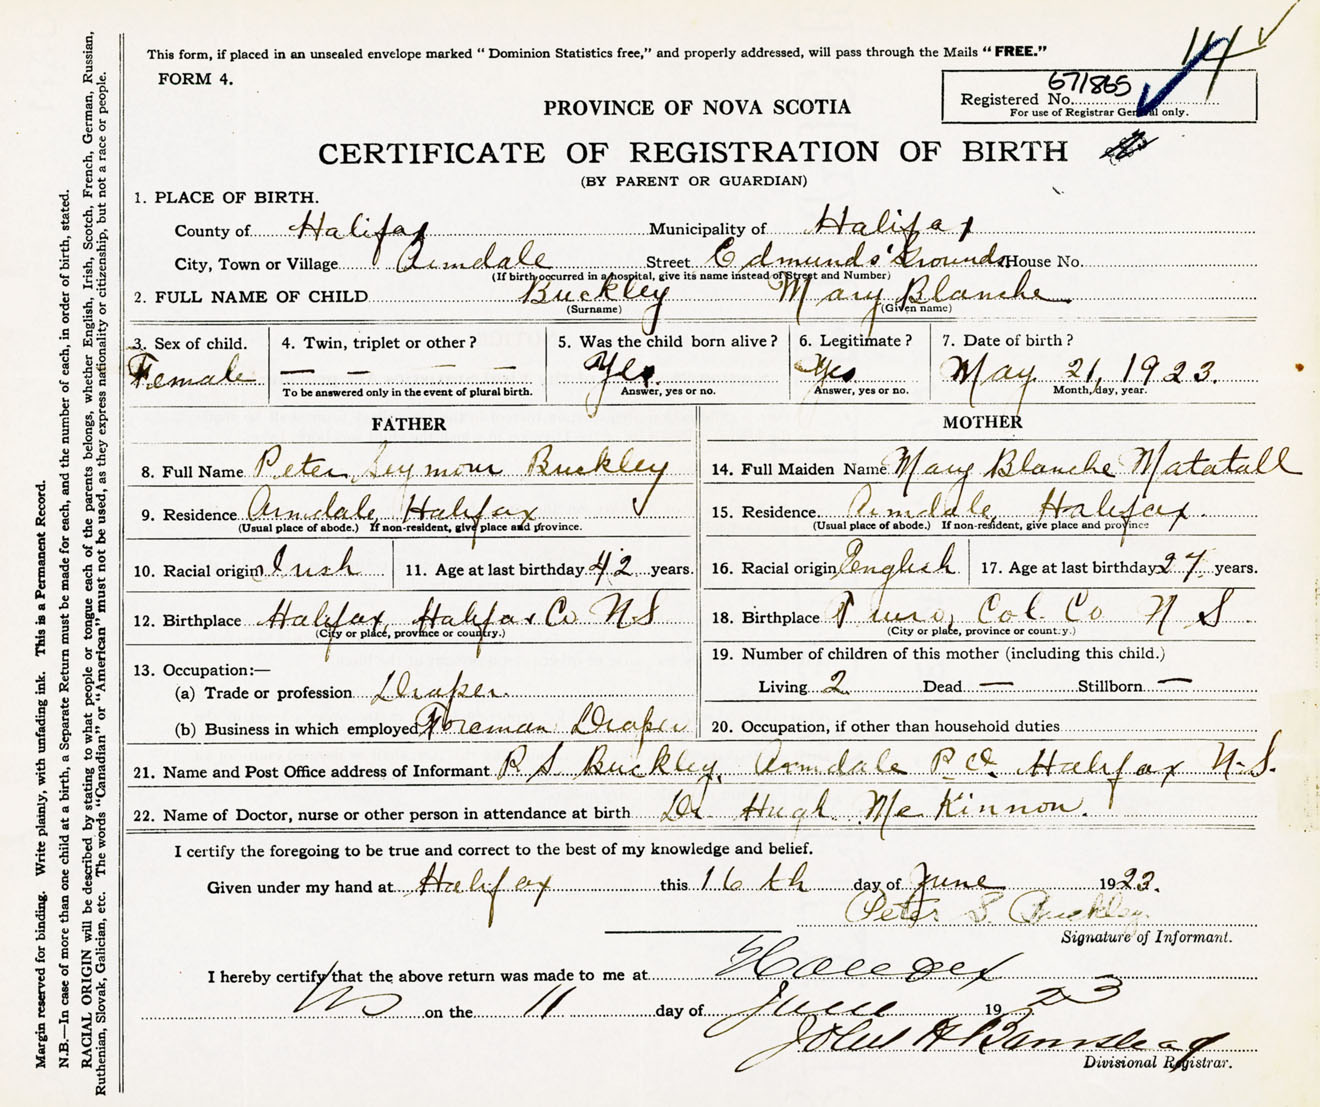 This form, if placed in an unsealed envelope marked "Dominion Statistics free," and properly addressed, will pass through the Mails "FREE."
14
FORM 4.
671865
Registered No.
For use of Registrar General only.
PROVINCE OF NOVA SCOTIA
CERTIFICATE OF REGISTRATION OF BIRTH
(BY PARENT OR GUARDIAN)
1. PLACE OF BIRTH.
County of Halifax Municipality of Halifax
City, Town or Village Armdale Street Edmunds' Grounds House No.
(If birth occurred in a hospital, give its name instead of Street and Number)
2. FULL NAME OF CHILD Buckley Mary Blanche
(Surname) (Given name)
3. Sex of child. 4. Twin, triplet or other? 5. Was the child born alive? 6. Legitimate? 7. Date of birth?
Female — — — — Yes. Yes May 21, 1923.
To be answered only in the event of plural birth. Answer, yes or no. Answer, yes or no. Month, day, year.
FATHER MOTHER
8. Full Name Peter Seymour Buckley 14. Full Maiden Name Mary Blanche Matatall
9. Residence Armdale, Halifax 15. Residence. Armdale, Halifax
(Usual place of abode.) If non-resident, give place and province. (Usual place of abode.) If non-resident, give place and province
10. Racial origin Irish 11. Age at last birthday 42 years. 16. Racial origin English 17. Age at last birthday 27 years.
12. Birthplace Halifax, Halifax Co N.S 18. Birthplace Truro, Col. Co N S
(City or place, province or country.) (City or place, province or country.)
13. Occupation:— 19. Number of children of this mother (including this child.)
(a) Trade or profession Draper. Living 2 Dead — Stillborn —
(b) Business in which employed Foreman Draper 20. Occupation, if other than household duties
21. Name and Post Office address of Informant P S Buckley, Armdale P.O. Halifax N.S.
22. Name of Doctor, nurse or other person in attendance at birth Dr Hugh McKinnon.
I certify the foregoing to be true and correct to the best of my knowledge and belief.
Given under my hand at Halifax this 16th day of June 1923.
Peter S. Buckley
Signature of Informant.
I hereby certify that the above return was made to me at Halifax
NS on the 11 day of June 1923
John A
Divisional Registrar.
Margin reserved for binding. Write plainly, with unfading ink. This is a Permanent Record.
N.B.—In case of more than one child at a birth, a Separate Return must be made for each, and the number of each, in order of birth, stated.
RACIAL ORIGIN will be described by stating to what people or tongue each of the parents belongs, whether English, Irish, Scotch, French, German, Russian,
Ruthenian, Slovak, Galician, etc. The words "Canadian" or "American" must not be used, as they express nationality or citizenship, but not a race or people.